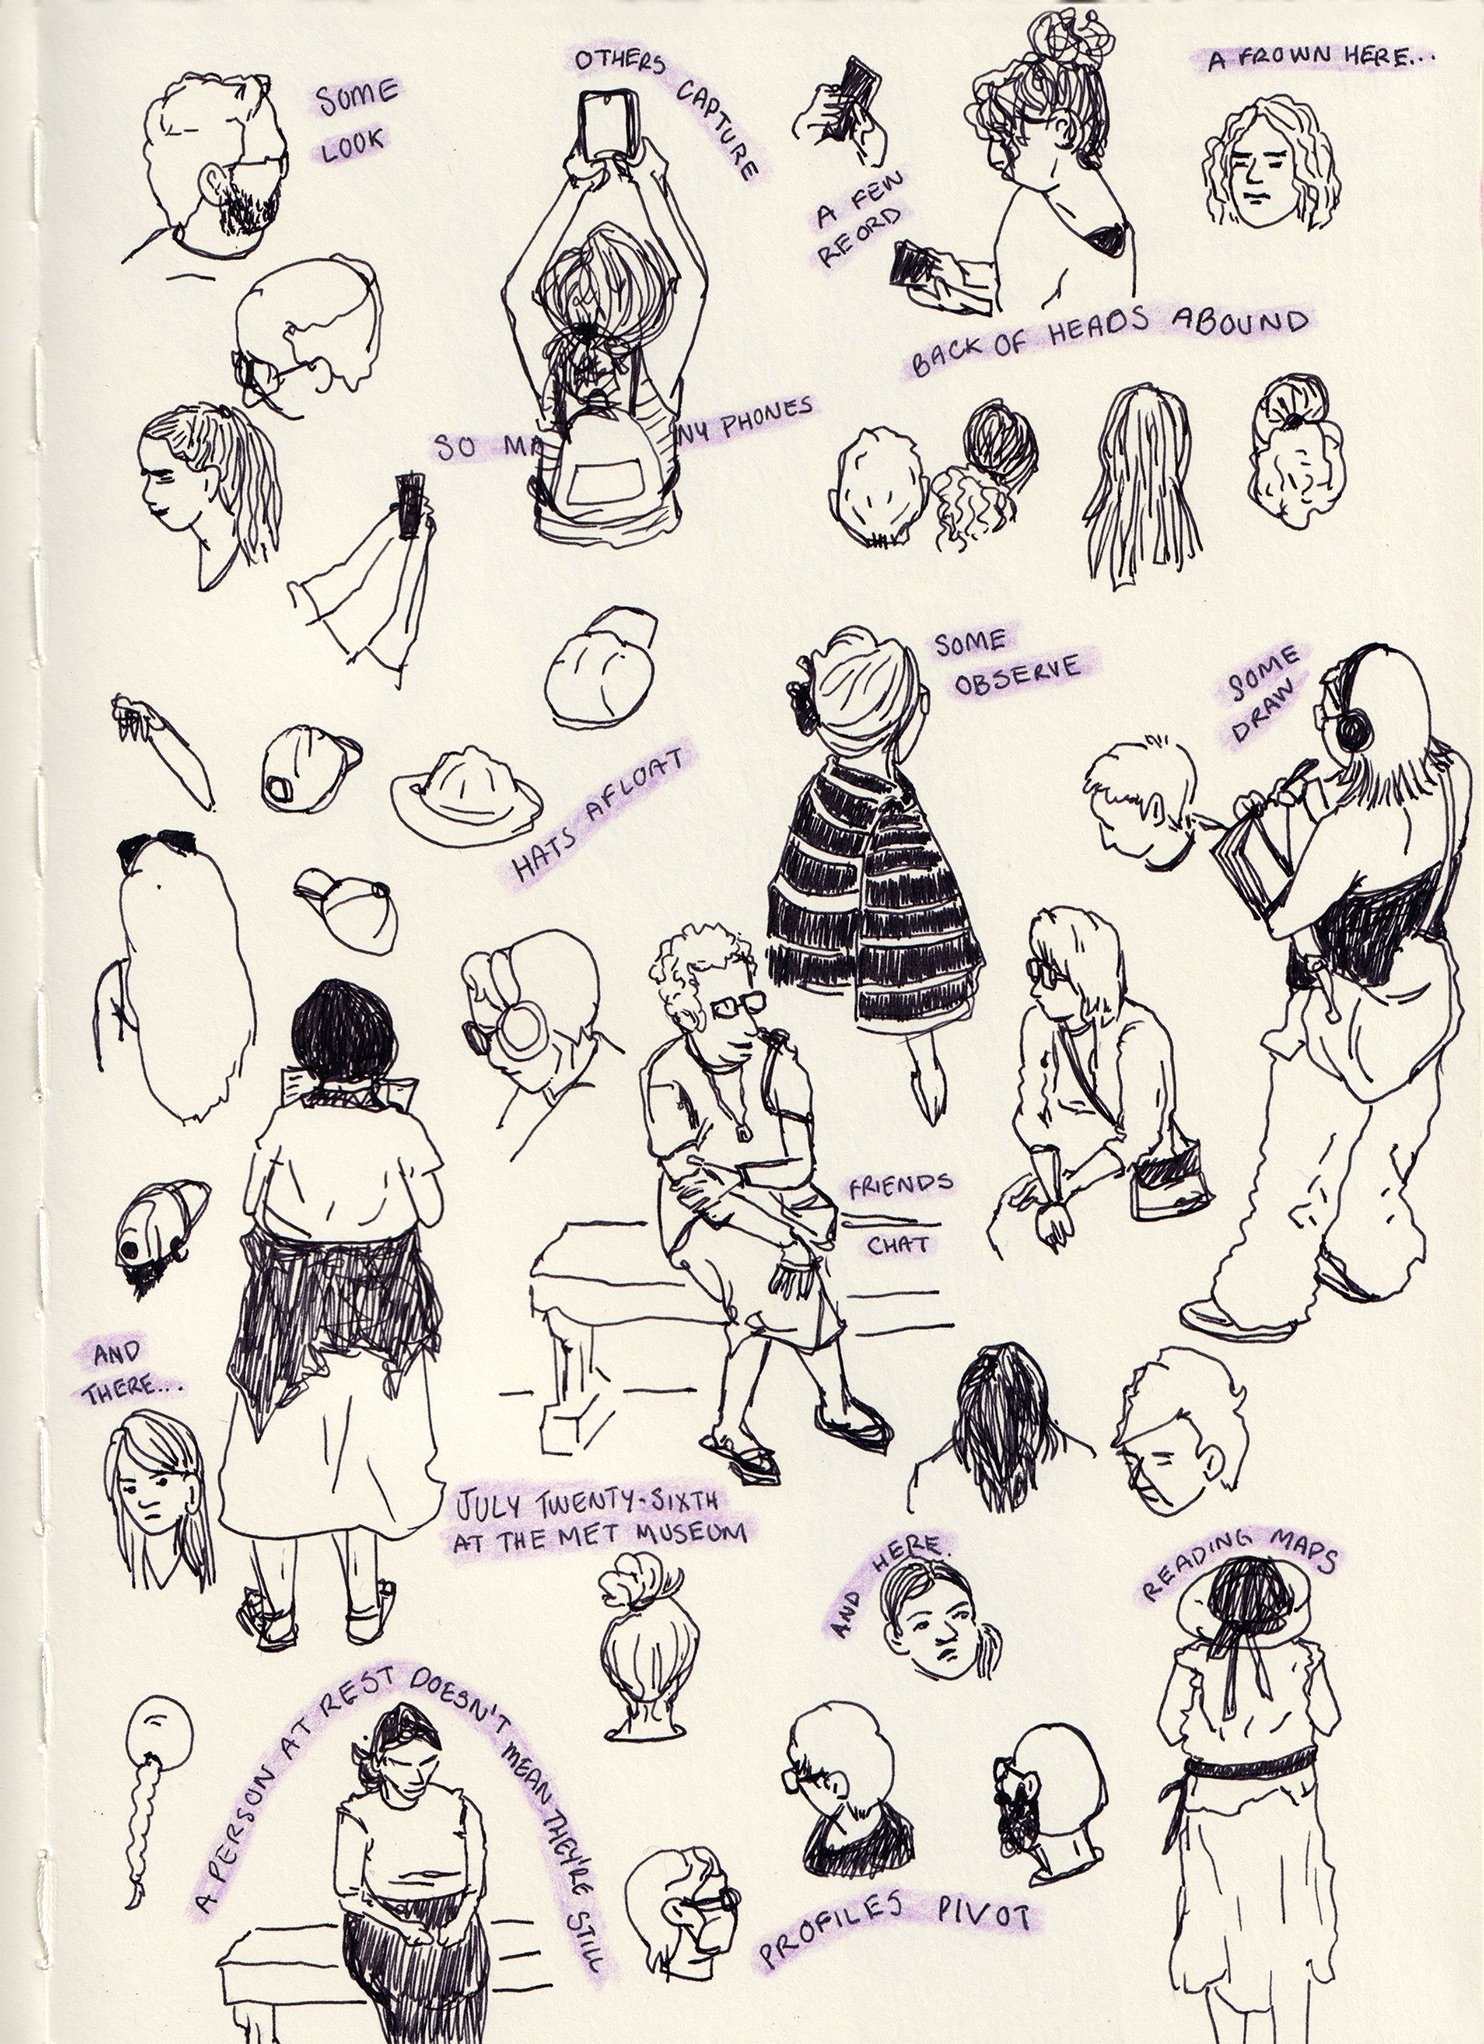 SOME
LOOK
OTHERS CAPTURE
A FEW
REORD
A FROWN HERE...
BACK OF HEADS ABOUND
SO MA NY PHONES
SOME
OBSERVE
SOME
DRAW
HATS AFLOAT
FRIENDS
CHAT
AND
THERE...
JULY TWENTY-SIXTH
AT THE MET MUSEUM
AND HERE.
READING MAPS
A PERSON AT REST DOESN'T MEAN THEY'RE STILL
PROFILES PIVOT